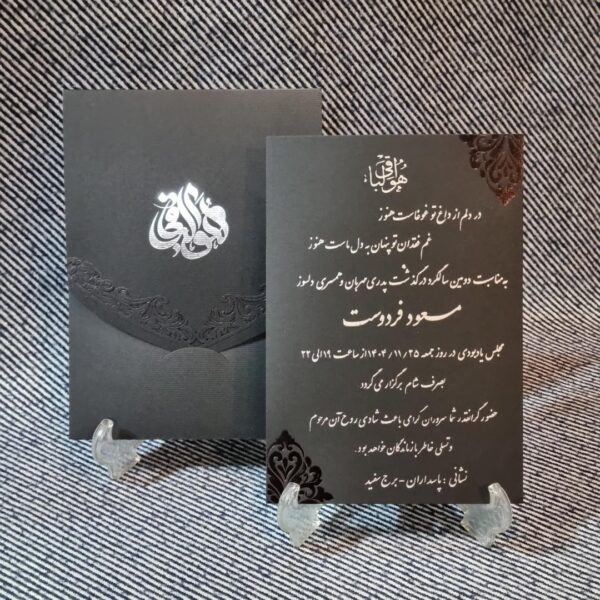 هوالباقی
هوالباقی
در دلم از داغ تو غوغاست هنوز
غم فقدان تو پنهان به دل ماست هنوز
به مناسبت دومین سالگرد درگذشت پدری مهربان و همسری دلسوز
مسعود فردوست
مجلس یادبودی در روز جمعه ۱۴۰۴/۱۱/۲۵ از ساعت ۱۹ الی ۲۲
بصرف شام برگزار می گردد
حضور گرانقدر شما سروران گرامی باعث شادی روح آن مرحوم
و تسلی خاطر بازماندگان خواهد بود.
نشانی : پاسداران - برج سفید